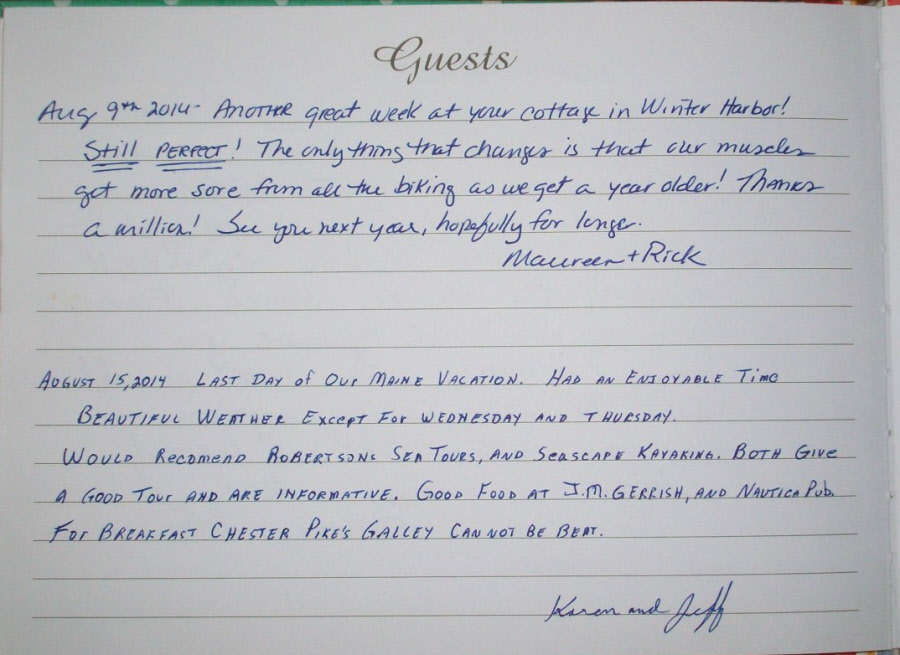 Guests
Aug 9th 2014 - ANOTHER great week at your cottage in Winter Harbor!
Still PERFECT! The only thing that changes is that our muscles
get more sore from all the biking as we get a year older! Thanks
a million! See you next year, hopefully for longer.
Maureen + Rick
AUGUST 15, 2014 LAST DAY of OUR MAINE VACATION. HAD AN ENJOYABLE TIME
BEAUTIFUL WEATHER EXCEPT FOR WEDNESDAY AND THURSDAY.
WOULD RECOMEND ROBERTSONS SEA TOURS, AND SEASCAPE KAYAKING. BOTH GIVE
A GOOD TOUR AND ARE INFORMATIVE. GOOD FOOD AT J.M. GERRISH, AND NAUTICA PUB.
FOR BREAKFAST CHESTER PIKE'S GALLEY CAN NOT BE BEAT.
Karen and Jeff